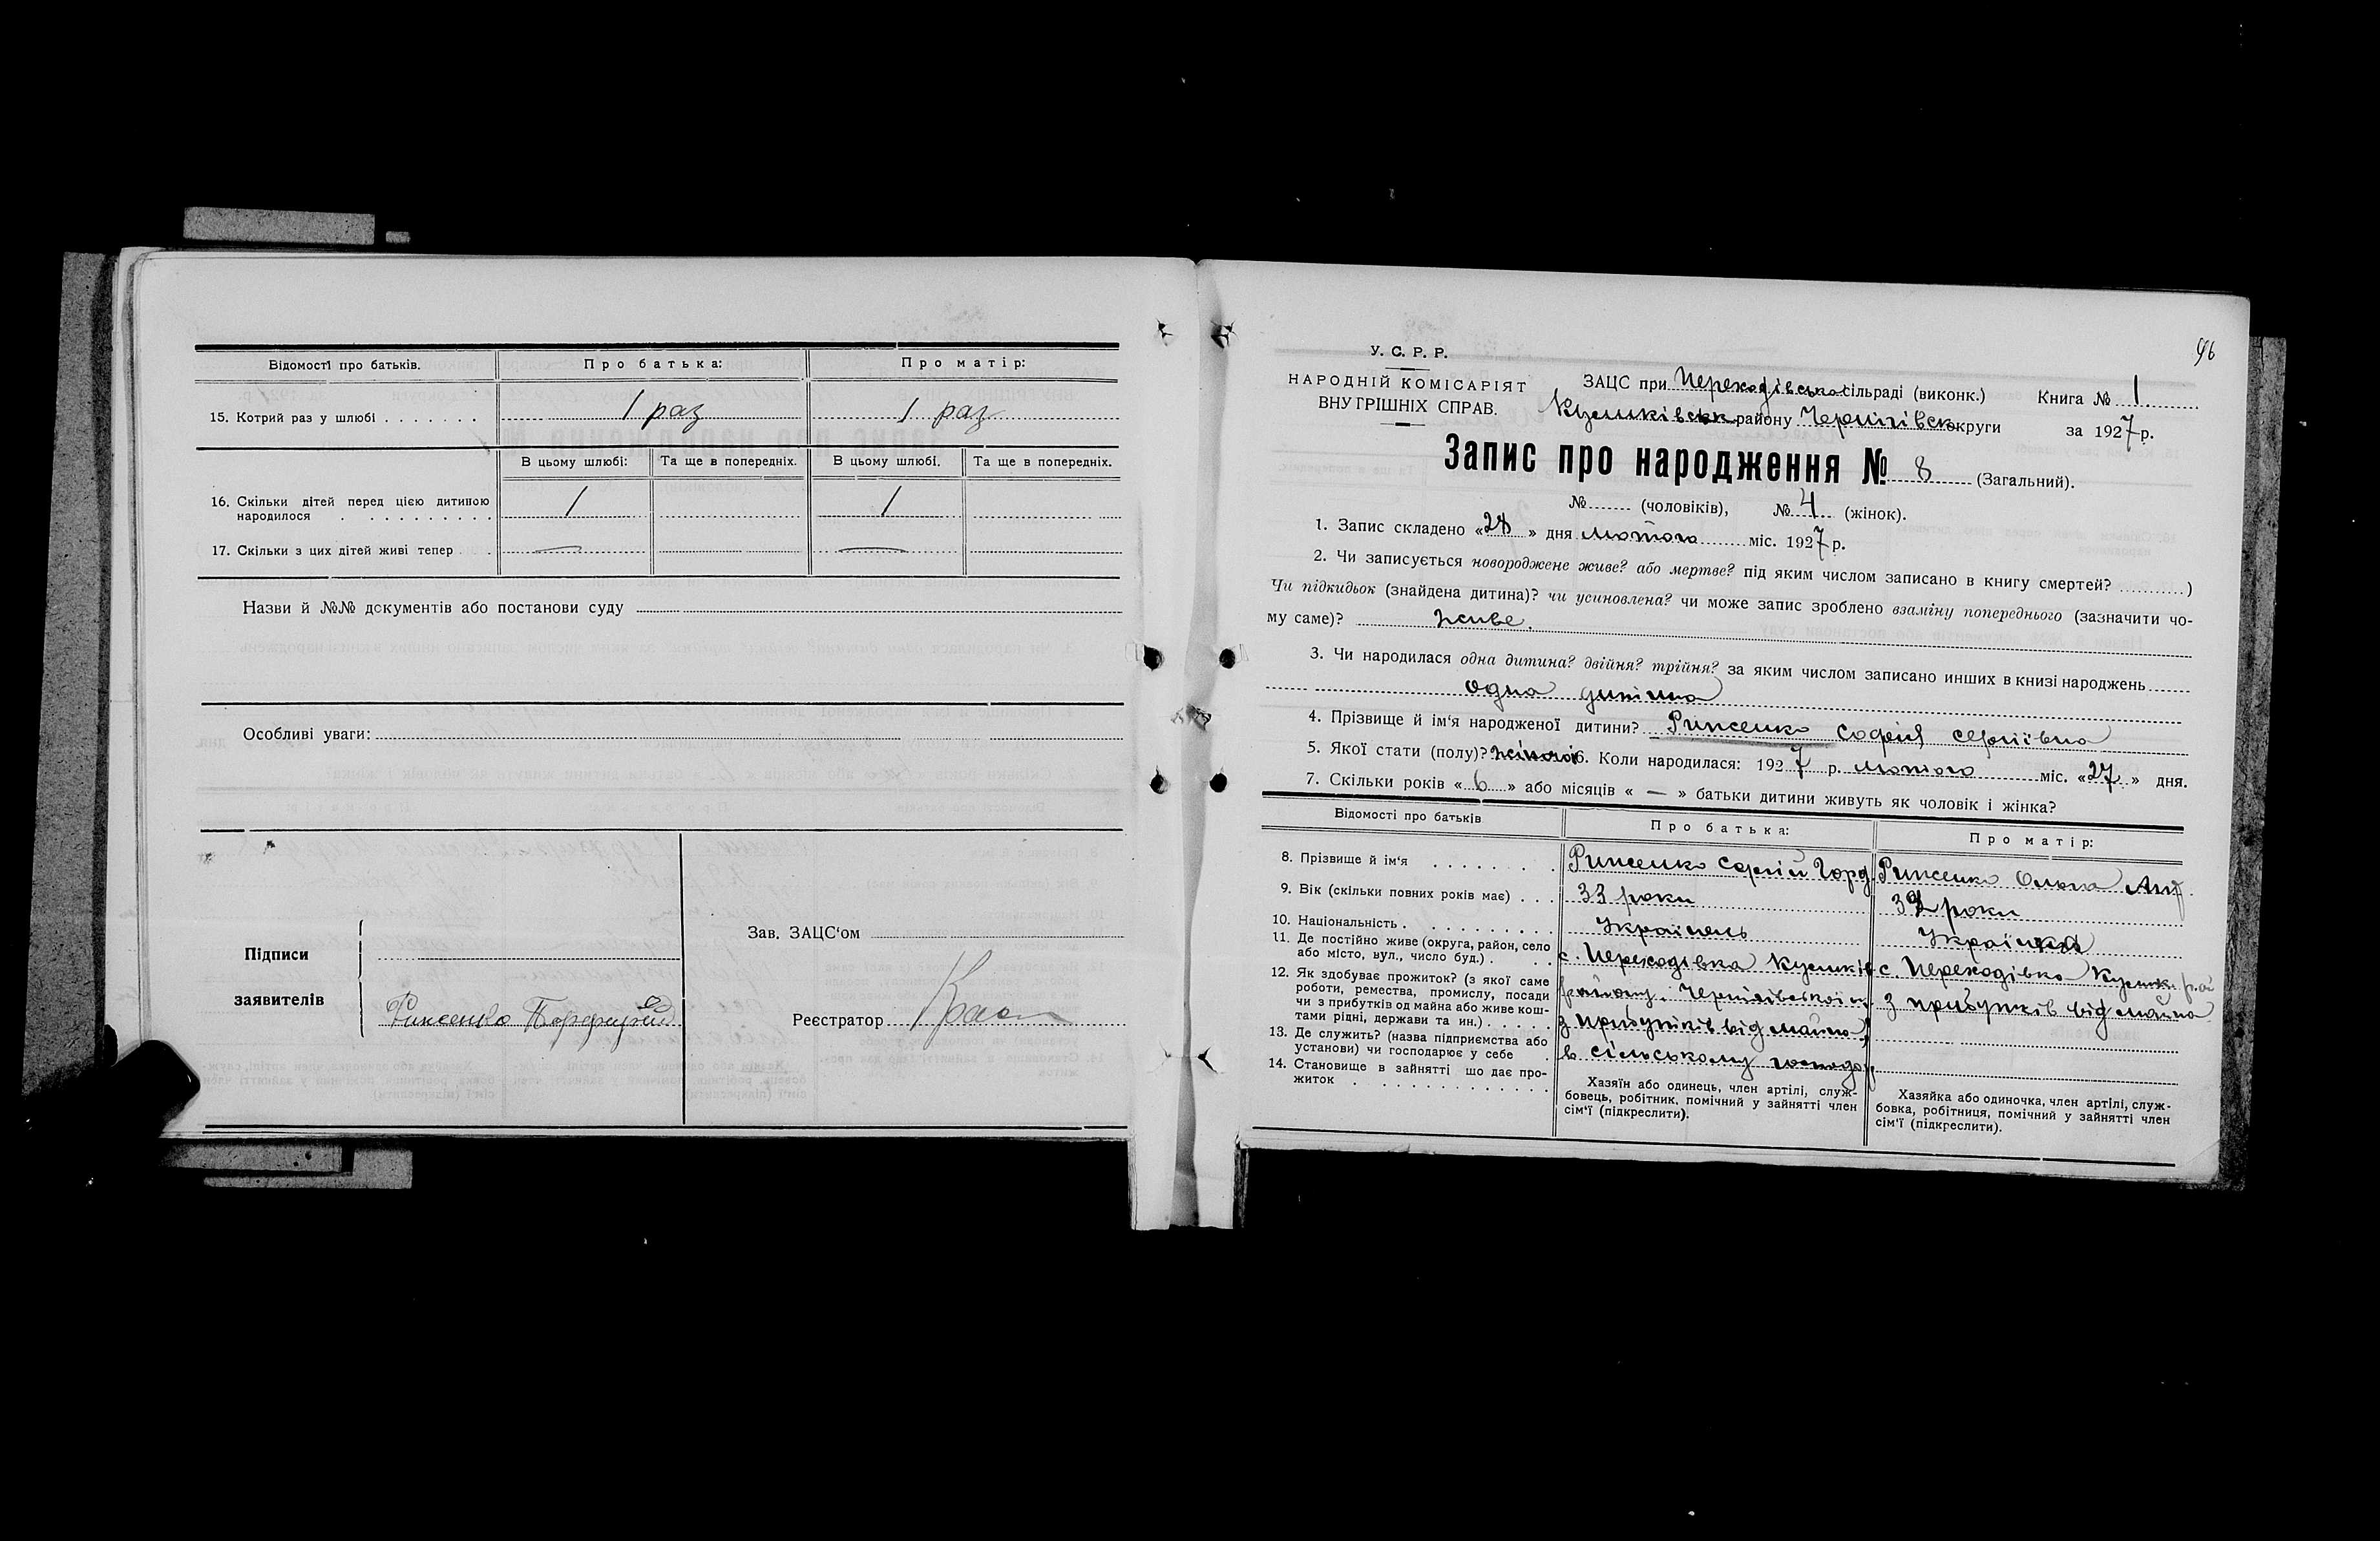 Відомості про батьків.
Про батька:
Про матір:
15. Котрий раз у шлюбі
1 раз
1 раз
В цьому шлюбі:
Та ще в попередніх.
В цьому шлюбі.
Та ще в попередніх.
16. Скільки дітей перед цією дитиною
народилося
1
1
17. Скільки з цих дітей живі тепер
—
—
Назви й №№ документів або постанови суду
Особливі уваги:
Підписи
заявителів
Зав. ЗАЦС'ом
Реєстратор
96
У. С. Р. Р.
НАРОДНІЙ КОМІСАРІЯТ
ВНУТРІШНІХ СПРАВ.
ЗАЦС при Переходівсько сільраді (виконк.)
Книга № 1
району Чернігівськ округи
за 1927 р.
Запис про народження № 8 (Загальний).
№ (чоловіків), № 4 (жінок).
1. Запис складено «28» дня лютого міс. 1927 р.
2. Чи записується новороджене живе? або мертве? під яким числом записано в книгу смертей? )
Чи підкидьок (знайдена дитина)? чи усиновлена? чи може запис зроблено взаміну попереднього (зазначити чо-
му саме)? живе.
3. Чи народилася одна дитина? двійня? трійня? за яким числом записано инших в книзі народжень
одна дитина
4. Прізвище й ім'я народженої дитини? Риженко Софія Сергіївна
5. Якої стати (полу)? жіночої 6. Коли народилася: 1927 р. лютого міс. «27» дня.
7. Скільки років «6» або місяців « — » батьки дитини живуть як чоловік і жінка?
Відомості про батьків
Про батька:
Про матір:
8. Прізвище й ім'я
Риженко Сергій Горд
Риженко Олена
9. Вік (скільки повних років має)
33 роки
роки
10. Національність
Українець
Українка
11. Де постійно живе (округа, район, село
або місто, вул., число буд.)
с. Переходівка
с. Переходівка
12. Як здобуває прожиток? (з якої саме
роботи, ремества, промислу, посади
чи з прибутків од майна або живе кош-
тами рідні, держави та ин.)
району Чернігівської
з прибутків від майна
з прибутків від майна
13. Де служить? (назва підприємства або
установи) чи господарює у себе
в сільському господар
14. Становище в зайнятті що дає про-
житок
Хазяїн або одинець, член артілі, служ-
бовець, робітник, помічний у зайнятті член
сім'ї (підкреслити).
Хазяйка або одиночка, член артілі, служ-
бовка, робітниця, помічний у зайнятті член
сім'ї (підкреслити).